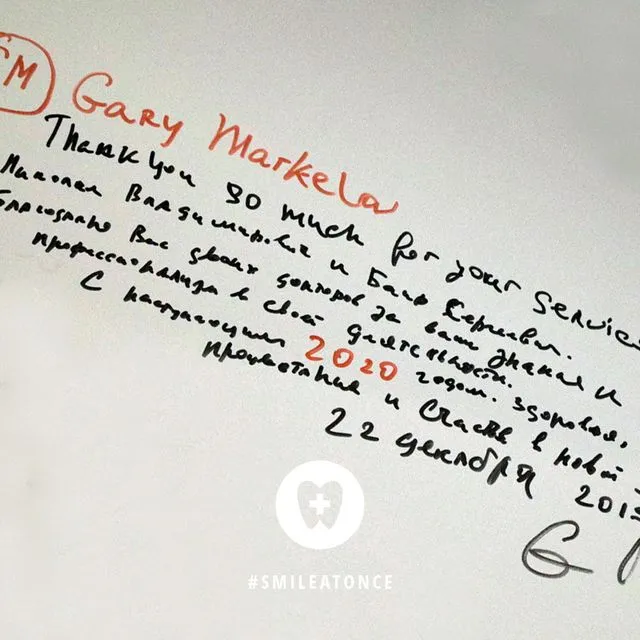 GM
Gary Markela
Thank you so much for your service
Николай Владимирович и Баир Сергеевич.
Благодарю Вас двоих докторов за ваши знания и
профессионализм в своей деятельности.
С наступающим 2020 годом. Здоровья,
процветания и Счастья в новой
22 декабря 2019
G
#SMILEATONCE